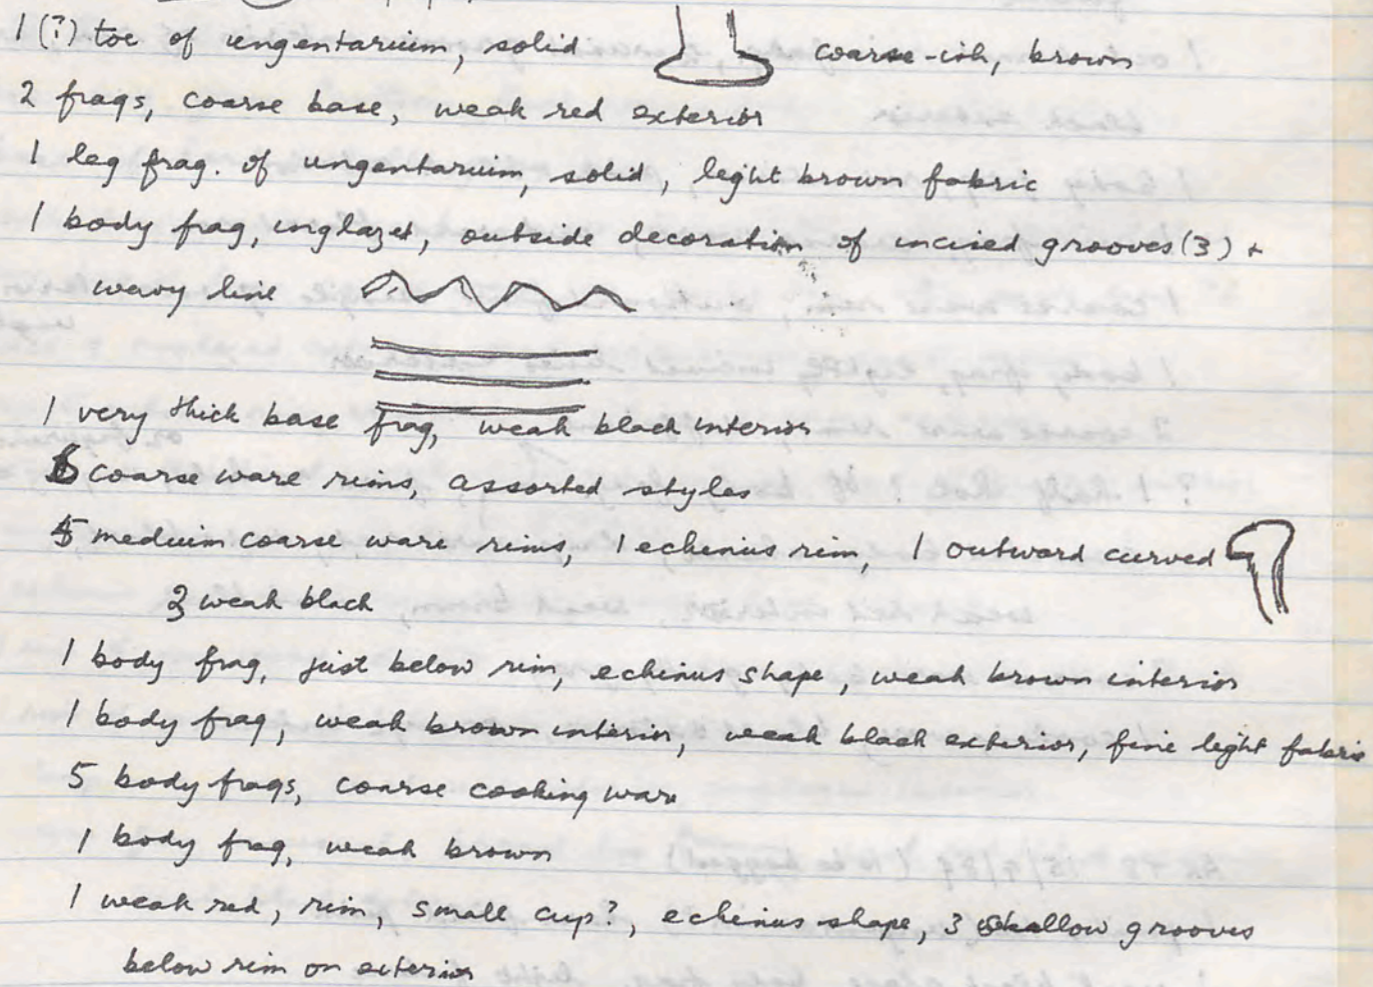 1 (?) toe of ungentarium, solid coarse-ish, brown
2 frags, coarse base, weak red exterior
1 leg frag. of ungentarium, solid, light brown fabric
1 body frag, unglazed, outside decoration of incised grooves (3) +
wavy line
1 very thick base frag, weak black interior
6 coarse ware rims, assorted styles
5 medium coarse ware rims, 1 echinius rim, 1 outward curved
weak black
1 body frag, just below rim, echinus shape, weak brown interior
1 body frag, weak brown interior, weak black exterior, fine light fabric
5 body frags, coarse cooking ware
1 body frag, weak brown
1 weak red, rim, small cup?, echinus shape, 3 shallow grooves
below rim on exterior